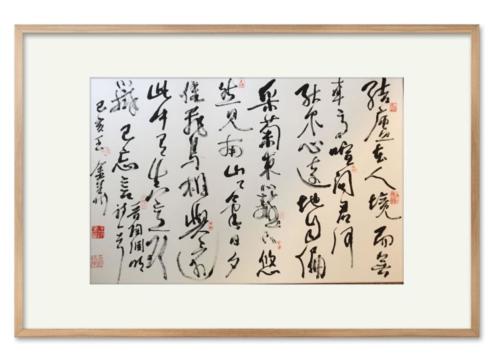 結廬在人境而無
車馬喧問君何
能尔心遠地自偏
采菊東籬下悠
然見南山山氣日夕
佳飛鳥相與還
此中有真意欲
辨已忘言
己亥